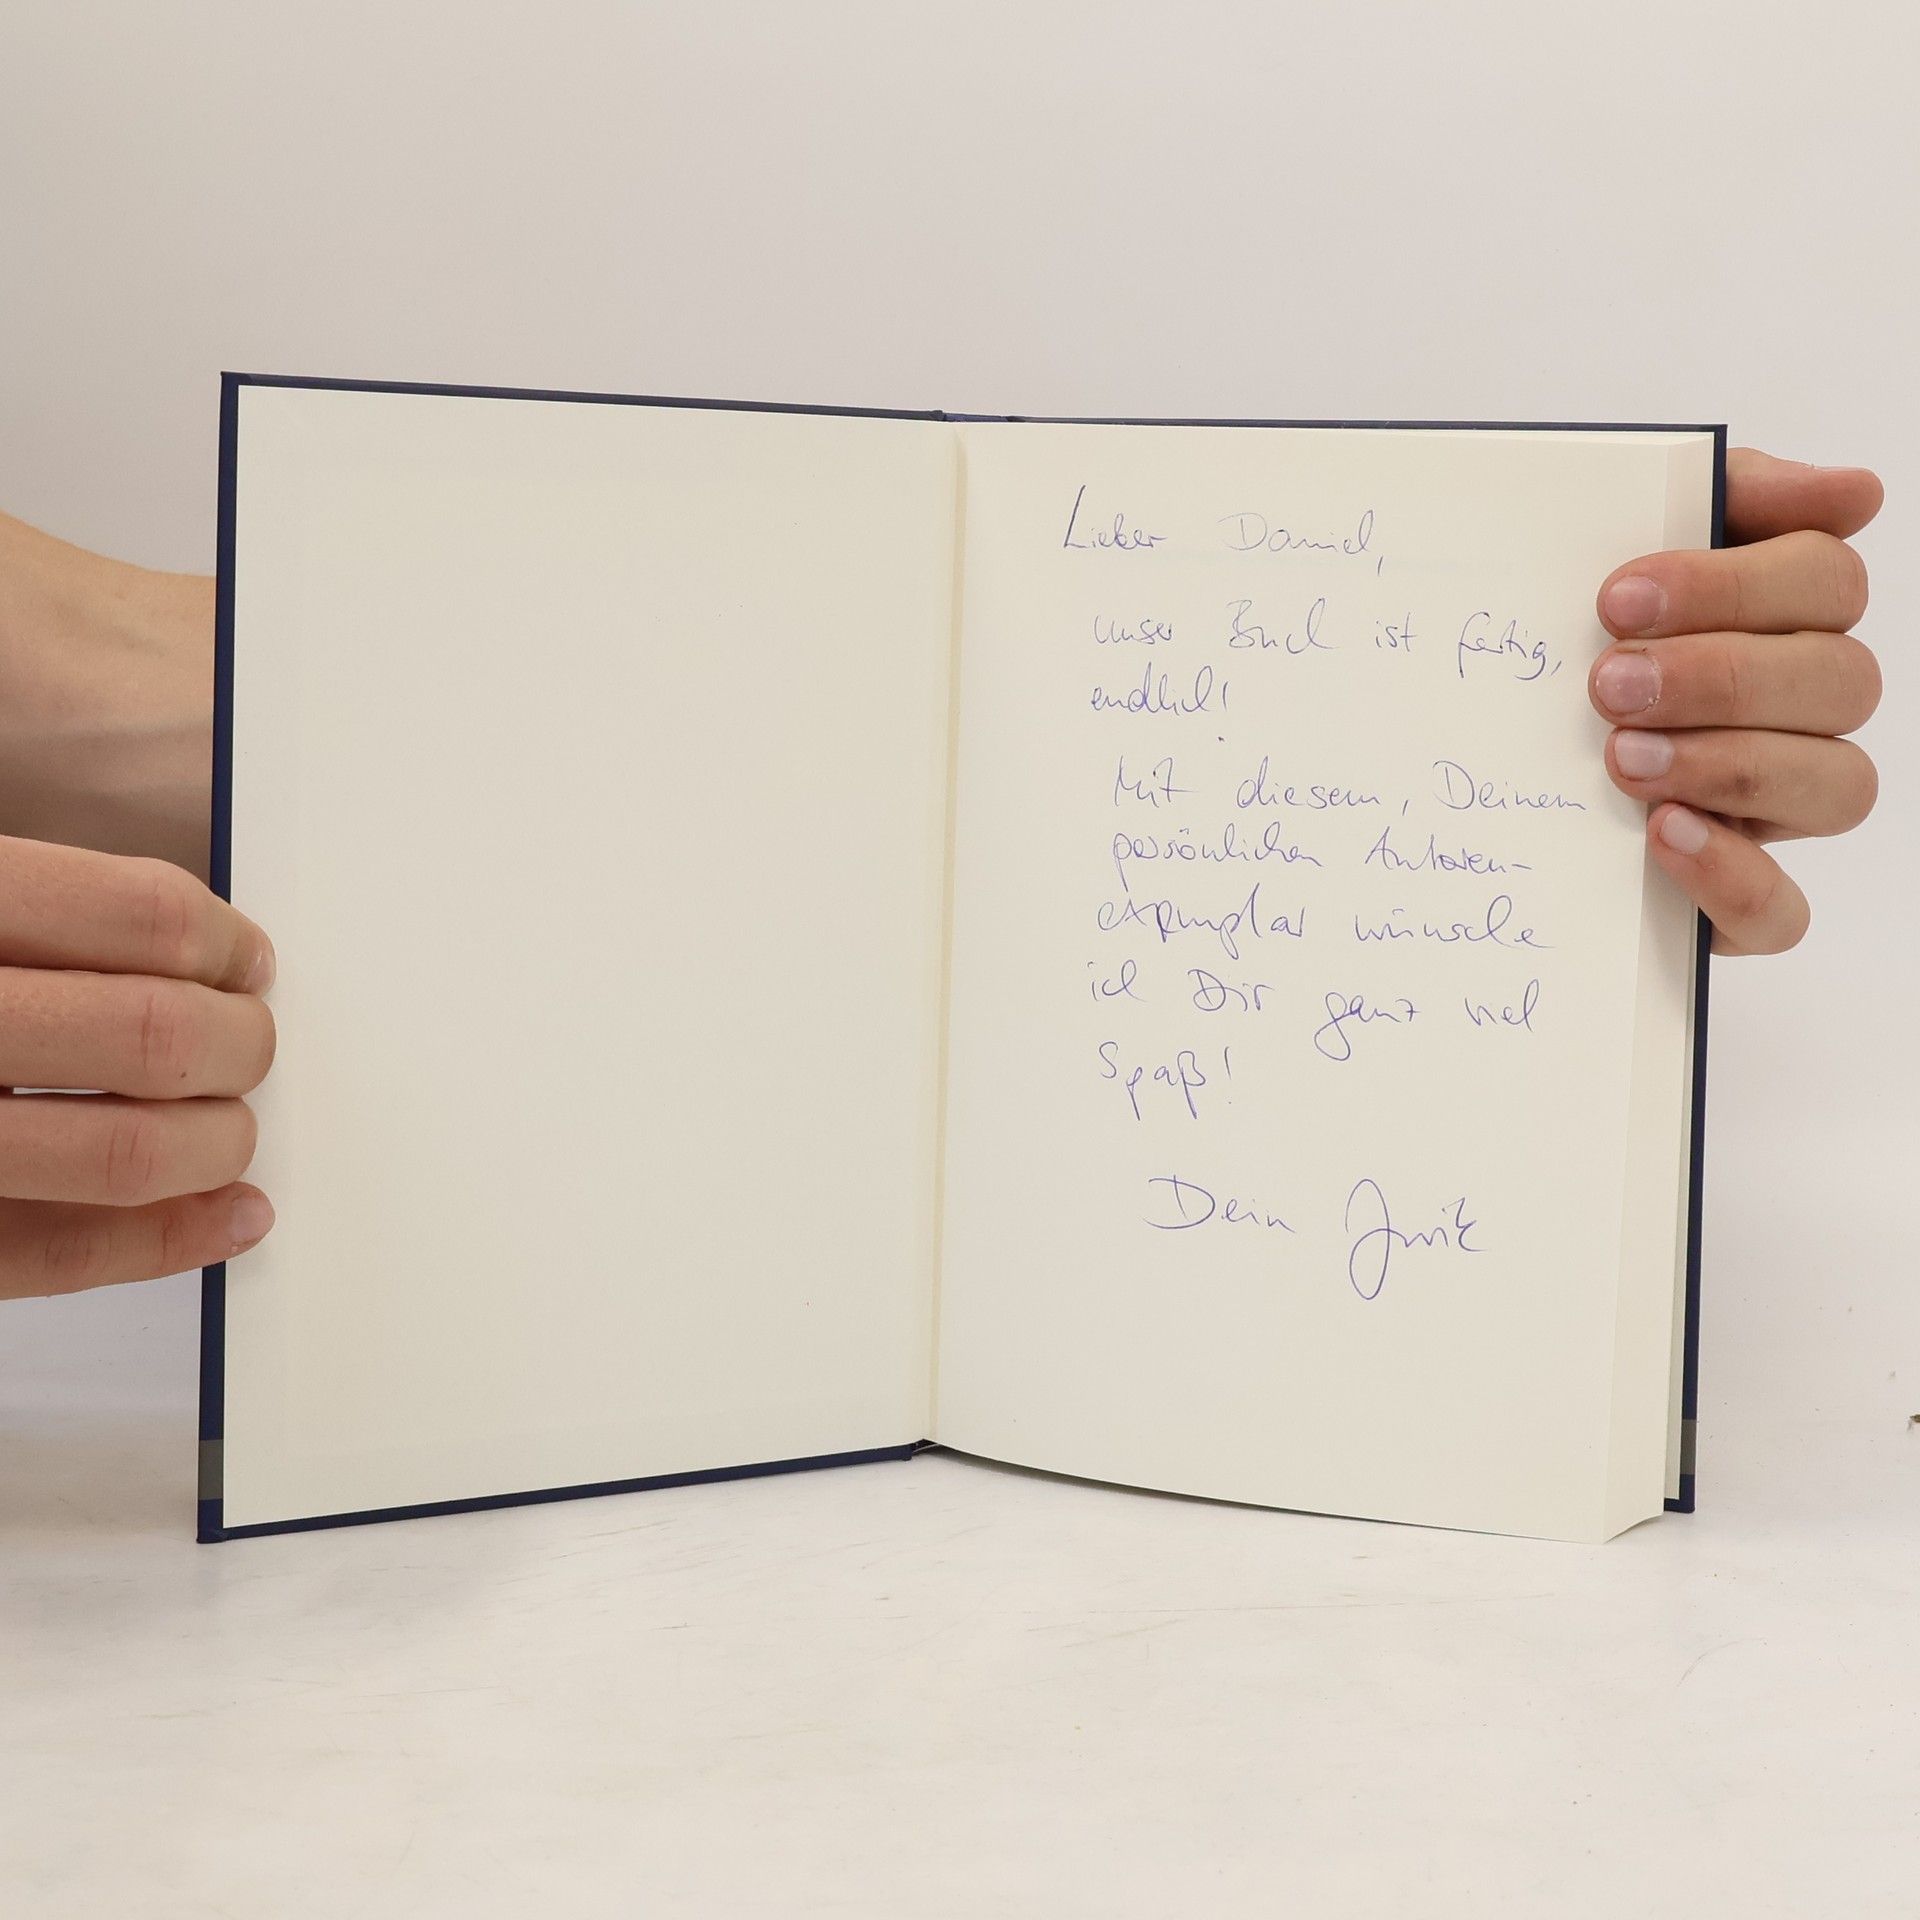 Lieber Daniel,
unser Buch ist fertig,
endlich!
Mit diesem, Deinem
persönlichen Autoren-
exemplar wünsche
ich Dir ganz viel
Spaß!
Dein